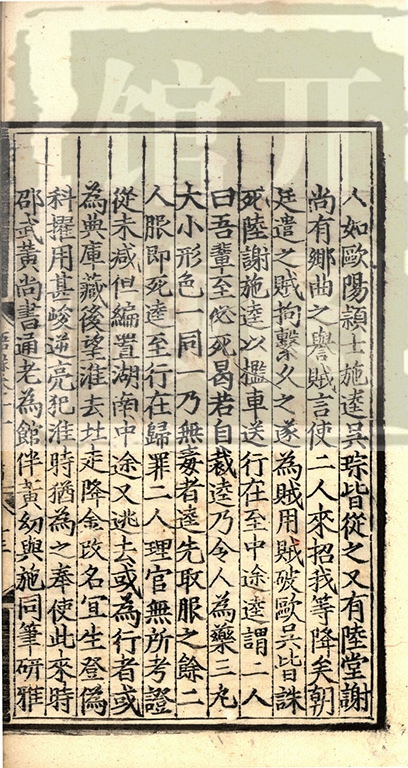 人如歐陽頴士施逵吳琮皆從之又有陸堂謝
尚有鄉曲之譽賊言使二人來招我等降矣朝
廷遣之賊拘繫久之遂為賊用賊破歐吳皆誅
死陸謝施逵以檻車送行在至中途逵謂二人
曰吾輩至必死曷若自裁逵乃令人為藥三丸
大小形色一同一乃無毒者逵先取服之餘二
人服即死逵至行在歸罪二人理官無所考證
從未減但編置湖南中途又逃去或為行者或
為典庫藏後望淮去北走降金改名宜生登偽
科擢用甚峻逆亮犯淮時猶為之奉使此來時
邵武黃尚書通老為館伴黃幼與施同筆研雅